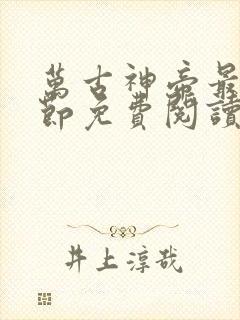 萬古神帝最
節免費閱讀
井上淳哉